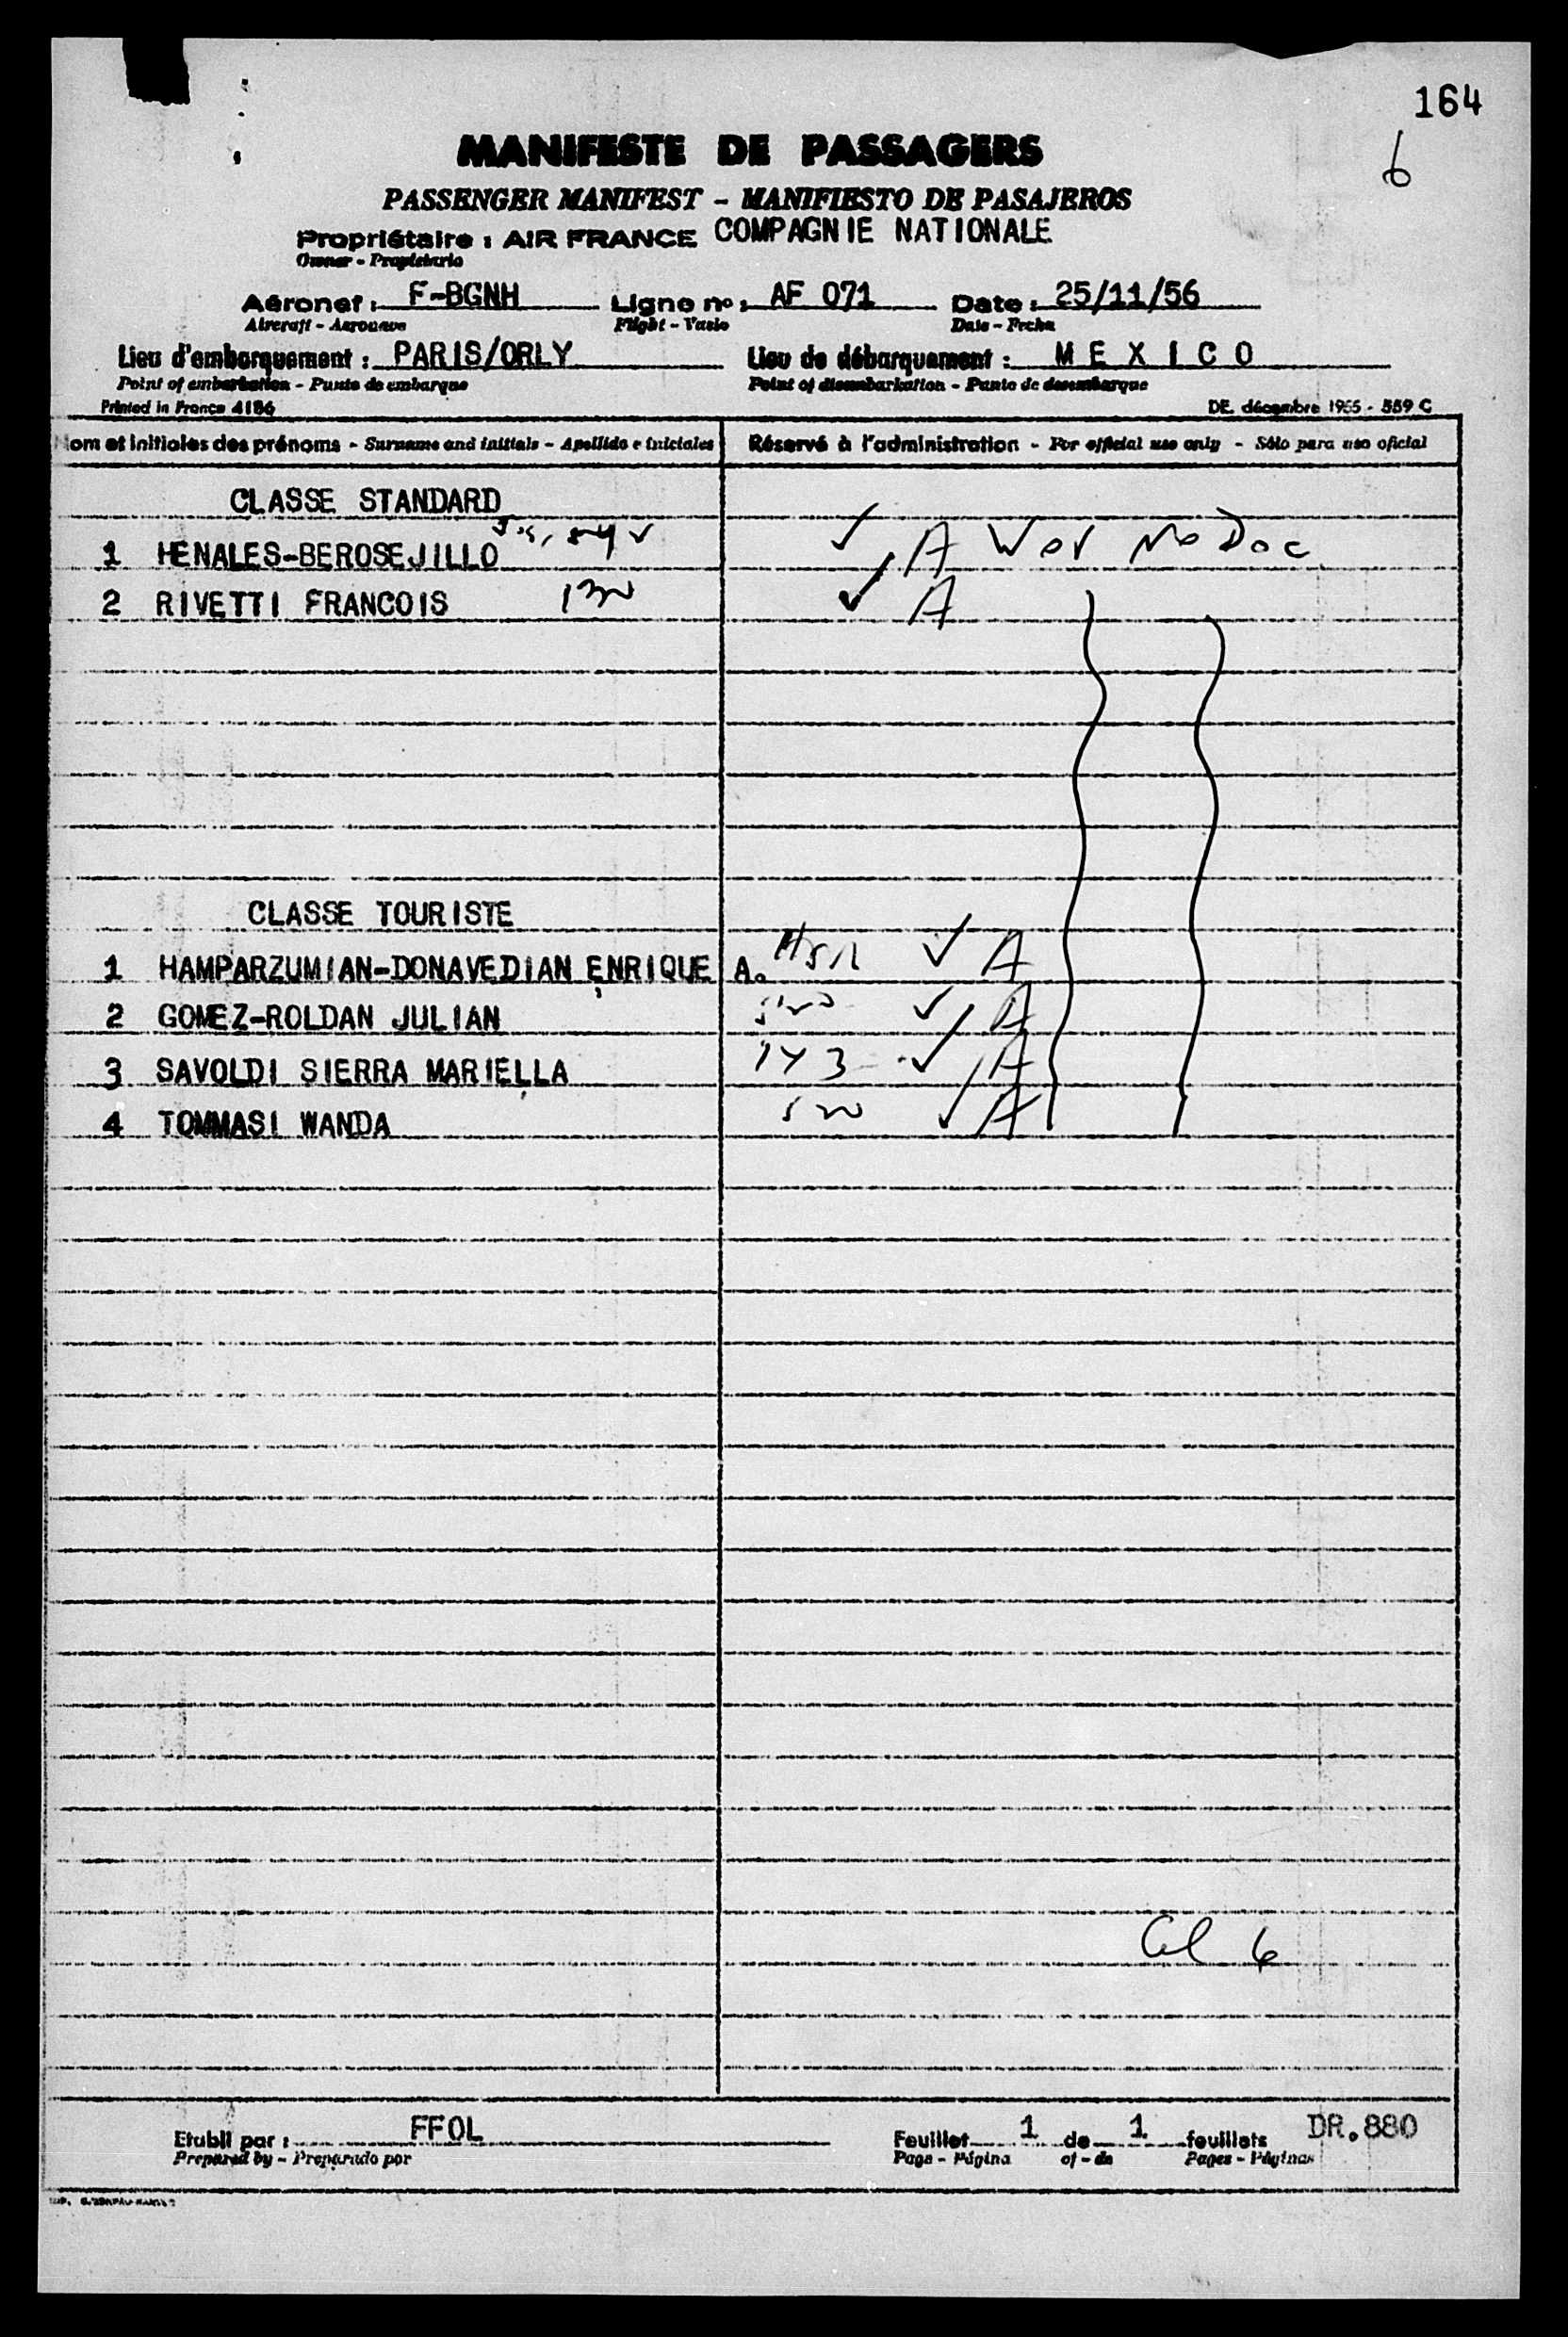 164
6
MANIFESTE DE PASSAGERS
PASSENGER MANIFEST - MANIFIESTO DE PASAJEROS
Propriétaire : AIR FRANCE COMPAGNIE NATIONALE
Owner - Propietario
Aéronef : F-BGNH Ligne nº : AF 071 Date : 25/11/56
Aircraft - Aeronave Flight - Vuelo Date - Fecha
Lieu d'embarquement : PARIS/ORLY Lieu de débarquement : M E X I C O
Point of embarkation - Punto de embarque Point of disembarkation - Punto de desembarque
Printed in France 4186 DE. décembre 1955 - 559 C
Nom et initiales des prénoms - Surname and initials - Apellido e iniciales Réservé à l'administration - For official use only - Sólo para uso oficial
CLASSE STANDARD
1 HENALES-BEROSEJILLO ✓ ✓ A No Doc
2 RIVETTI FRANCOIS ✓ A
CLASSE TOURISTE
1 HAMPARZUMIAN-DONAVEDIAN ENRIQUE A. ✓ A
2 GOMEZ-ROLDAN JULIAN ✓ A
3 SAVOLDI SIERRA MARIELLA ✓ A
4 TOMMASI WANDA ✓ A
6
Etabli par : FFOL Feuillet 1 de 1 feuillets DR.880
Prepared by - Preparado por Page - Página of - de Pages - Páginas